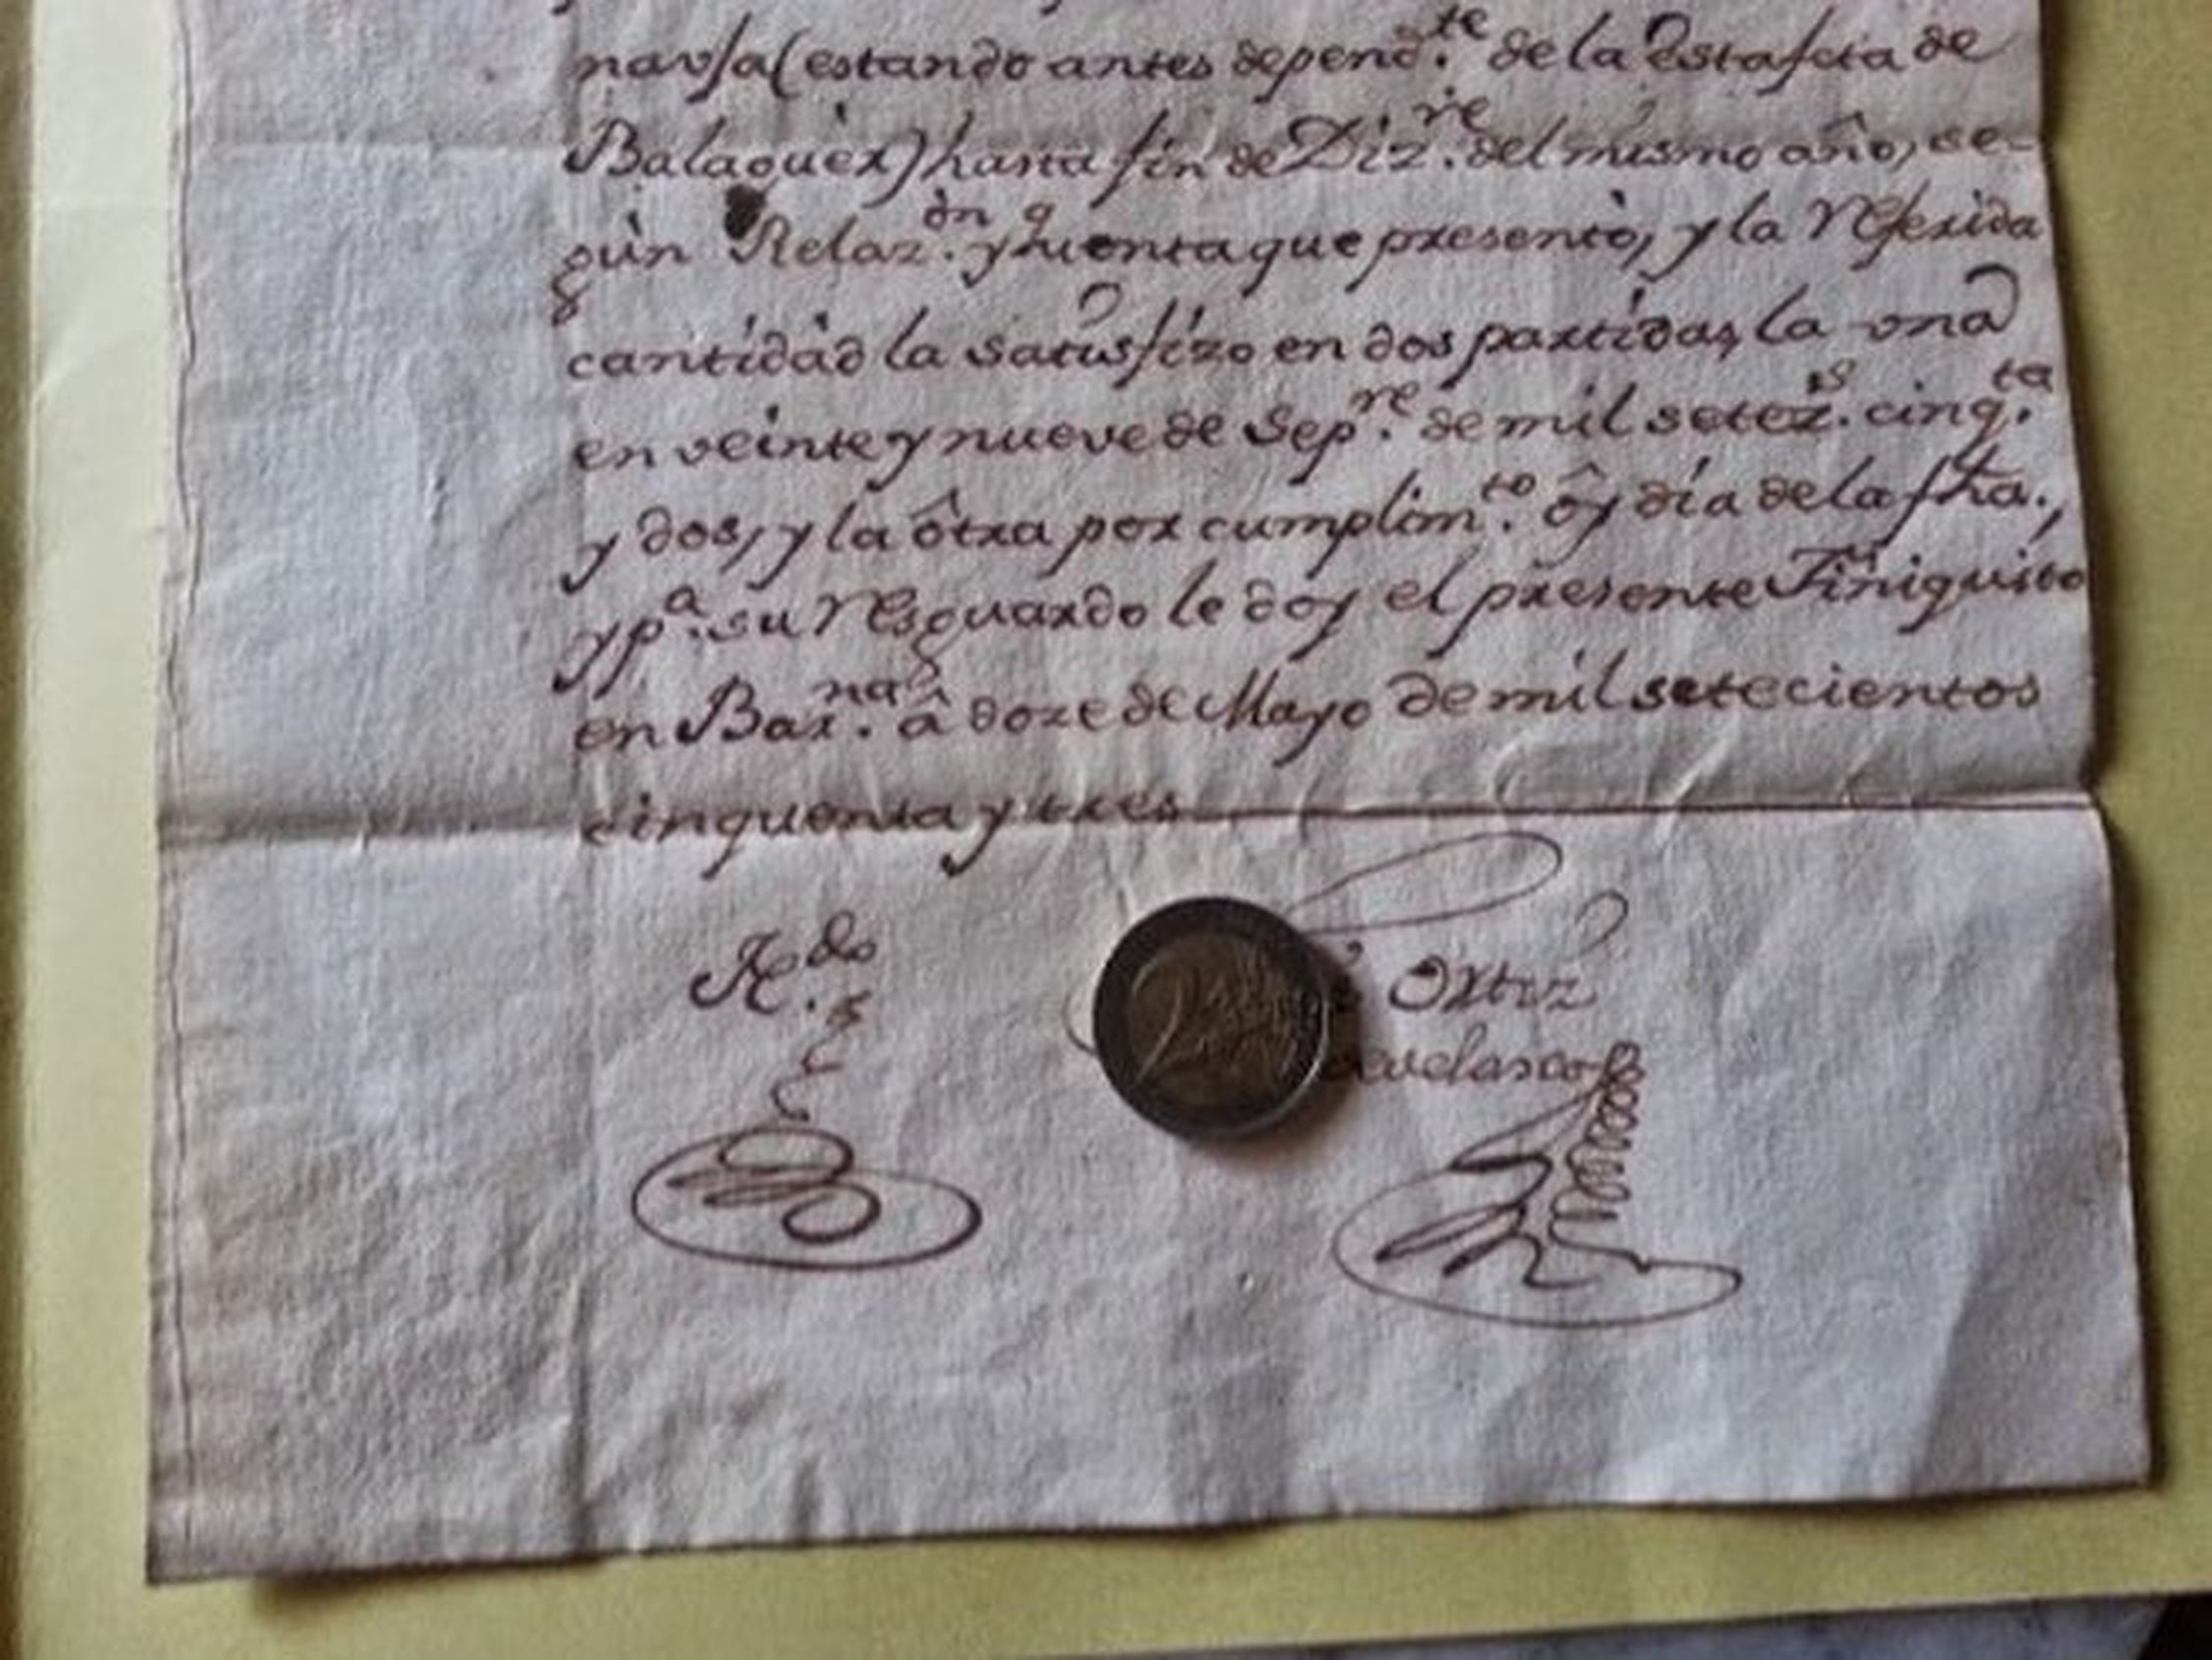 navſa (estando antes depend.te de la Estafeta de
Balaguèr) hasta fin de Diz.re del mismo año, se-
gùn Relaz.òn y quenta que presentò, y la Referida
cantidàd la satisfizo en dos partidas, la una
en veinte y nueve de Sep.re de mil setez.s cinq.ta
y dos, y la ôtra por cumplim.to ôy dia de la fha.,
y p.a su Resguardo le doy el presente Finiquito
en Bar.na â doze de Mayo de mil setecientos
cinquenta y tres
R.do
2
Ortiz
develasco